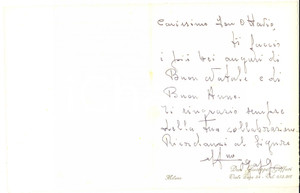 Carissimo Don Ottavio,
Ti faccio
i più bei auguri di
Buon Natale e di
Buon Anno.
Ti ringrazio sempre
della tua collaborazione.
Ricordiamoci al Signore
aff.mo
Milano